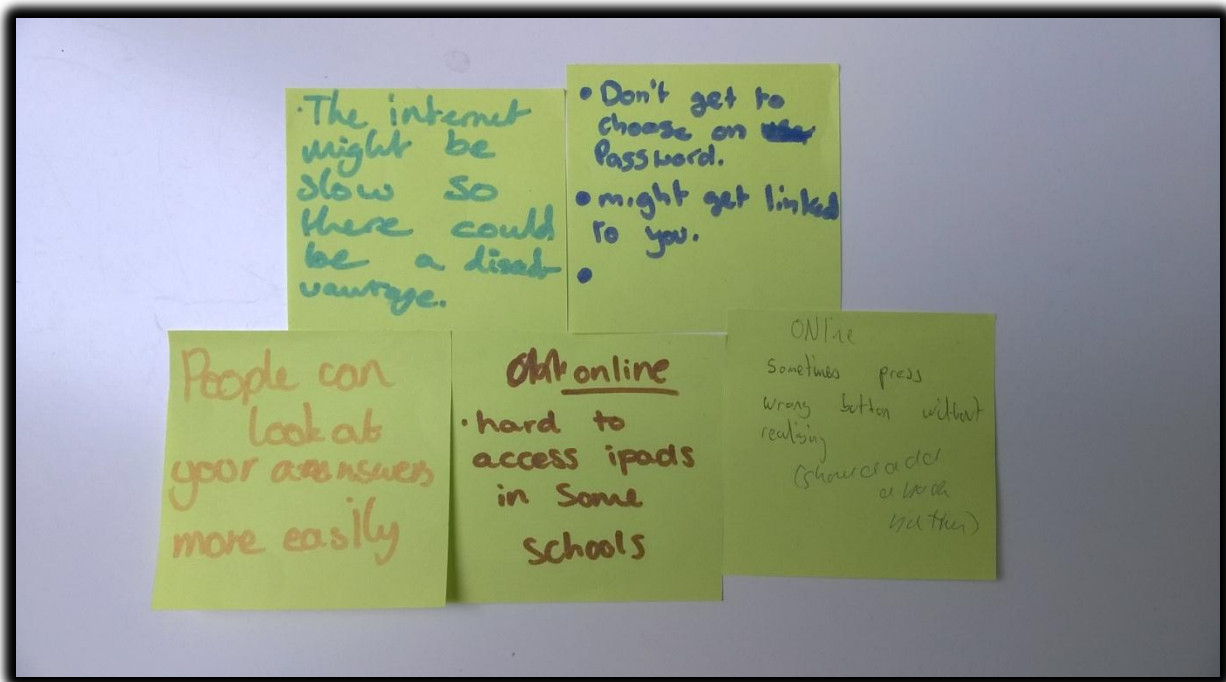 ·The internet
might be
slow so
there could
be a disad-
vantage.
• Don't get to
choose on
Password.
• might get linked
to you.
•
People can
look at
your answers
more easily
online
·hard to
access ipads
in Some
schools
ONline
Sometimes press
wrong button without
realising
(should add
a back
button)